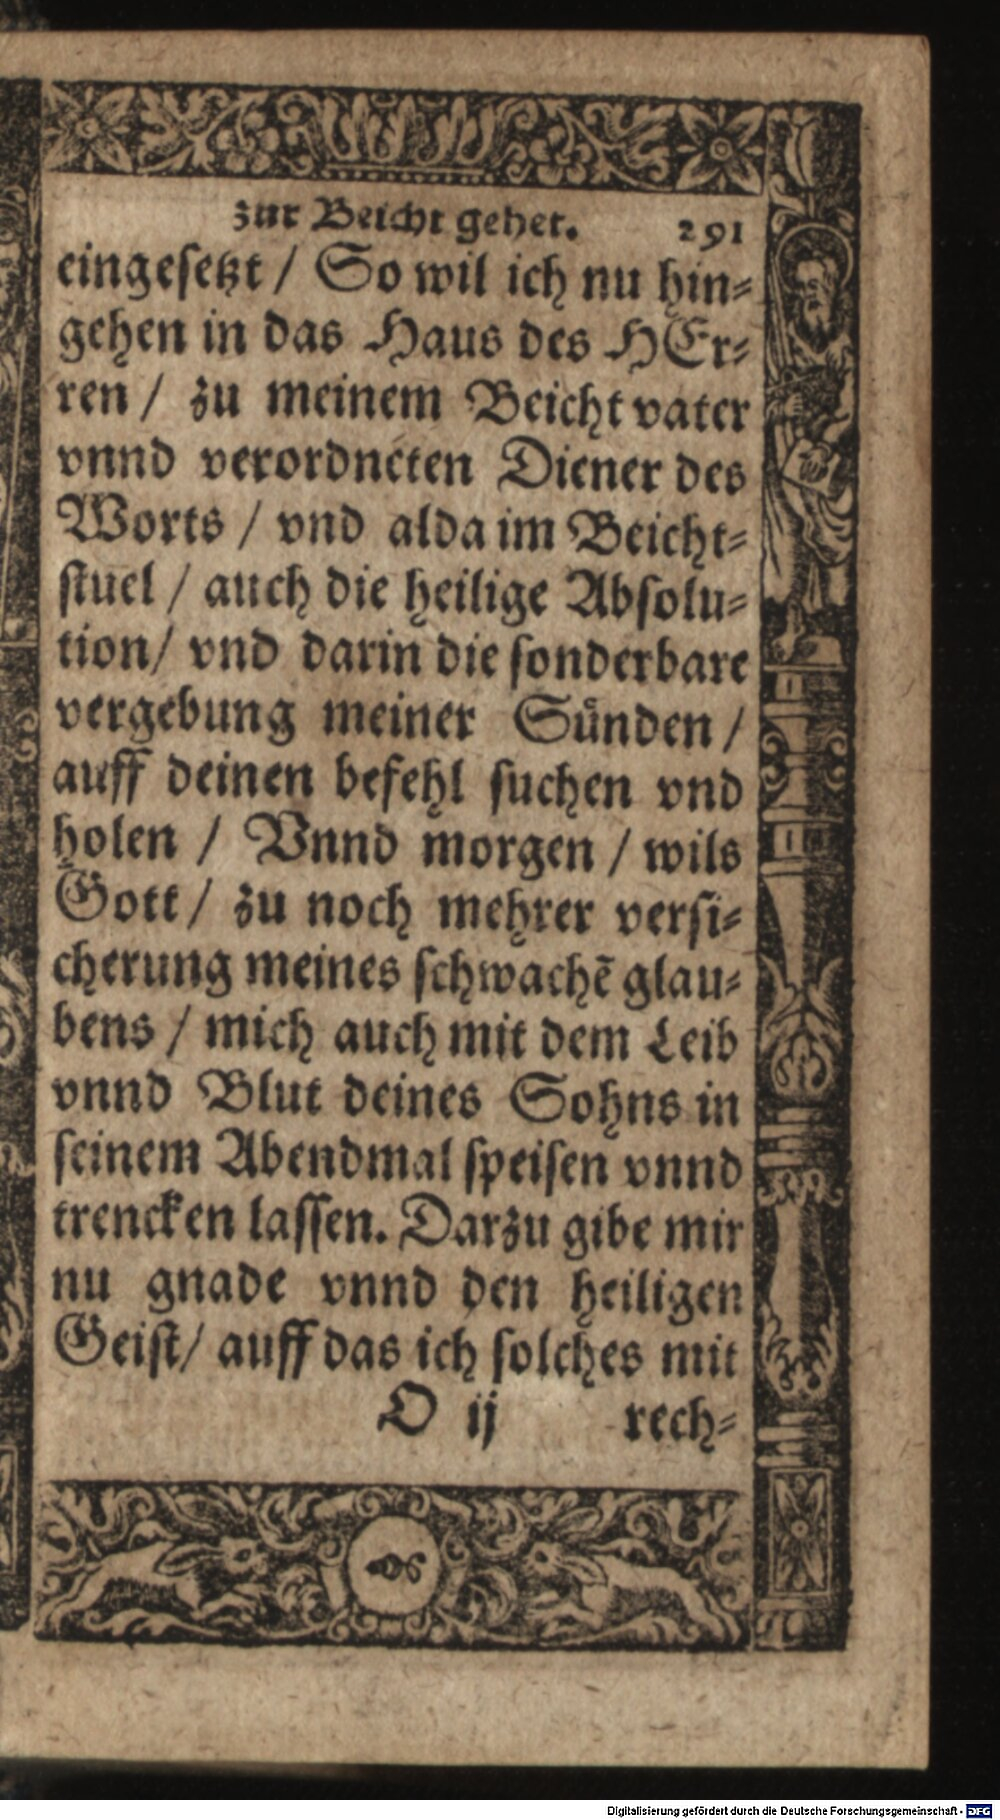 zur Beicht gehet. 291
eingeſetzt / So wil ich nu hin⸗
gehen in das Haus des HEr⸗
ren / zu meinem Beicht vater
vnnd verordneten Diener des
Worts / vnd alda im Beicht⸗
ſtuel / auch die heilige Abſolu⸗
tion / vnd darin die ſonderbare
vergebung meiner Sünden /
auff deinen befehl ſuchen vnd
holen / Vnnd morgen / wils
Gott / zu noch mehrer verſi⸗
cherung meines ſchwachẽ glau⸗
bens / mich auch mit dem Leib
vnnd Blut deines Sohns in
ſeinem Abendmal ſpeiſen vnnd
trencken laſſen. Darzu gibe mir
nu gnade vnnd den heiligen
Geiſt / auff das ich ſolches mit
O ij rech⸗
Digitalisierung gefördert durch die Deutsche Forschungsgemeinschaft - DFG